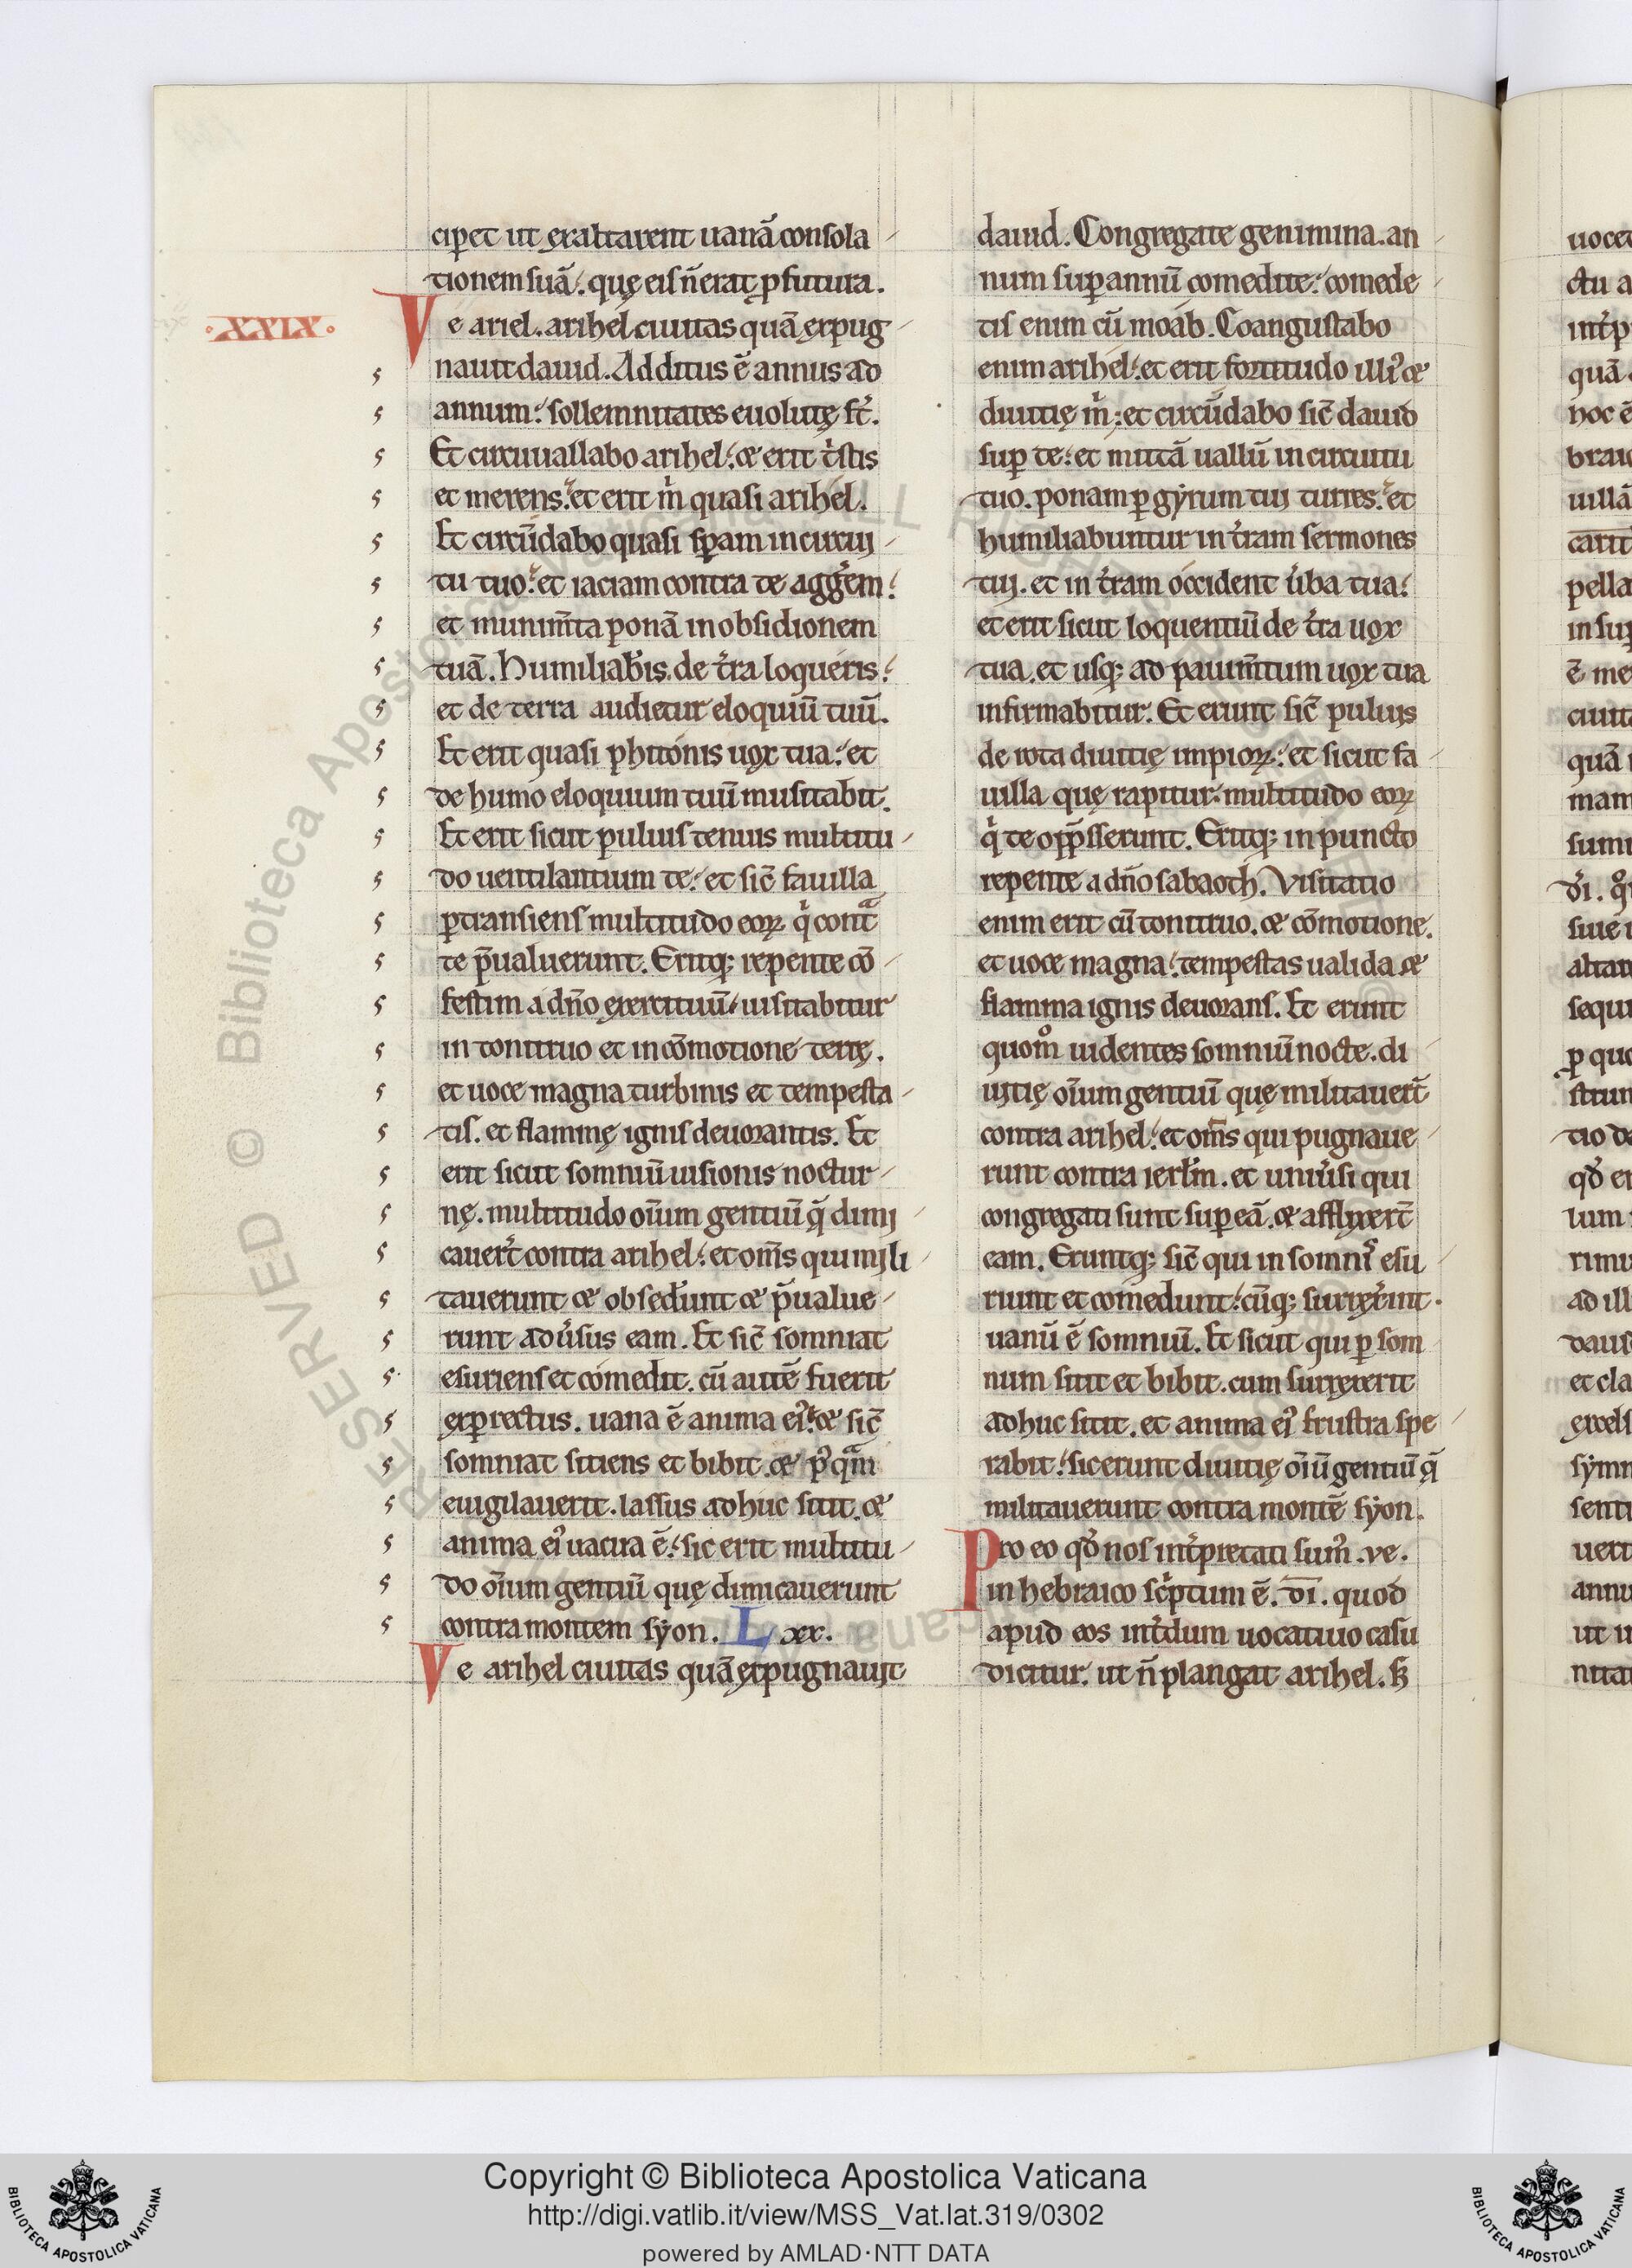 cip̄et ut exaltarent uanā consola
tionem suā. quę eis n̄ erat ꝓfutura.
·XXIX·
Ve ariel. arihel ciuitas quā expug
nauit dauid. Additus ē annus ad
annum: sollemnitates euolutę st̄.
Et circūuallabo arihel: et erit tͥstis
et merens: et erit m̍ quasi arihel.
Et circūdabo quasi sꝑam in circui
tu tuo: et iaciam contra te agg̃em:
et munim̄ta ponā in obsidionem
tuā. Humiliab̍is. de t̃ra loqueris:
et de terra audietur eloquiū tuū.
Et erit quasi phitonis uox tua: et
de humo eloquium tuū musitabit.
Et erit sicut puluis tenuis multitu
do uentilantium te: et sic̄ fauilla
ꝑtransiens multitudo eoꝝ qͥ contͣ
te p̄ualuerunt. Eritq; repente cō
festim a dn̄o exercituū uisitabitur
in tonitruo et in cōmotione terrę.
et uoce magna turbinis et tempesta
tis. et flammę ignis deuorantis. Et
erit sicut somniū uisionis noctur
nę. multitudo oīum gentiū q̄ dimi
cauer̄t contra arihel: et om̄s qui mili
tauerunt et obsed̍unt et p̄ualue
runt adu̍sus eam. Et sic̄ somniat
esuriens et comedit. cū autē fuerit
exꝑrectus. uana ē anima ei᾿: et sic̄
somniat sitiens et bibit. et p᾿qͣm
euigilauerit. lassus adhuc sitit. et
anima ei᾿ uacua ē: sic erit multitu
do oīum gentiū quę dimicauerunt
contra montem syon. Lxx.
Ve arihel ciuitas quā expugnauit
dauid. Congregate genimina. an
num suꝑ annū comedite: comede
tis enim cū moab. Coangustabo
enim arihel: et erit fortitudo illi᾿ et
diuitię m̍: et circūdabo sic̄ dauid
suꝑ te: et mittā uallū in circuitu
tuo. ponam ꝑ gyrum tui turres: et
humiliabuntur in t̃ram sermones
tui. et in t̃ram occident u̍ba tua:
et erit sicut loquentiū de t̃ra uox
tua. et usq; ad pauim̄tum uox tua
infirmabitur. Et erunt sic̄ puluis
de rota diuitię impioꝝ: et sicut fa
uilla quę rapitur: multitudo eoꝝ
qͥ te opp̄sserunt. Eritq; in puncto
repente a dn̄o sabaoth. Visitatio
enim erit cū tonitruo. et cōmotione.
et uoce magna: tempestas ualida et
flamma ignis deuorans. Et erunt
quom̊ uidentes somniū nocte. di
uitię oīum gentiū quę militauer̄t
contra arihel: et om̄s qui pugnaue
runt contra ierłm. et uniu̍si qui
congregati sunt suꝑ eā. et afflixer̄t
eam. Eruntq; sic̄ qui in somnis esu
riunt et comedunt: cūq; surrex̍int.
uanū ē somniū. Et sicut qui ꝑ som
num sitit et bibit. cum surrexerit
adhuc sitit. et anima ei᾿ frustra spe
rabit: sic erunt diuitię oīū gentiū q̄
militauerunt contra montē syon.
Pro eo qd̍ nos int̍pretati sum᾿. ve.
in hebraico sc̍ptum ē. oı̄. quod
apud eos int̍dum uocatiuo casu
dicitur. ut n̄ plangat arihel. s;
Copyright © Biblioteca Apostolica Vaticana
http://digi.vatlib.it/view/MSS_Vat.lat.319/0302
powered by AMLAD·NTT DATA
BIBLIOTECA APOSTOLICA VATICANA
BIBLIOTECA APOSTOLICA VATICANA